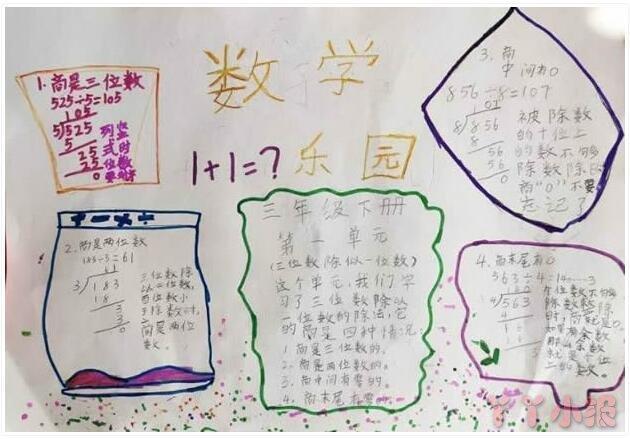 数学
乐园
1+1=?
1.商是三位数
525÷5=105
105
5)525
5
25
25
0
列竖
式时
位数
要对
2.商是两位数
183÷3=61
61
3)183
18
3
3
0
三位数除
以一位数,
百位数小
于除数时,
商是两位
数。
三年级下册
第一单元
(三位数除以一位数)
这个单元,我们学
习了三位数除以
一位数的除法,它
的商是四种情况:
1.商是三位数的。
2.商是两位数的。
3.商中间有零的。
4.商末尾有零
3.商
中间有0
856÷8=107
107
8)856
8
56
56
0
被除数
的十位上
的数不够
除数除时
商"0"不要
忘记了
4.商末尾有0
563÷4=140……3
4)563
4
16
16
3
个位数不够
除数除
时,商就是0
如果有余数
那么余数
就是个位
上的数。
丫丫小报